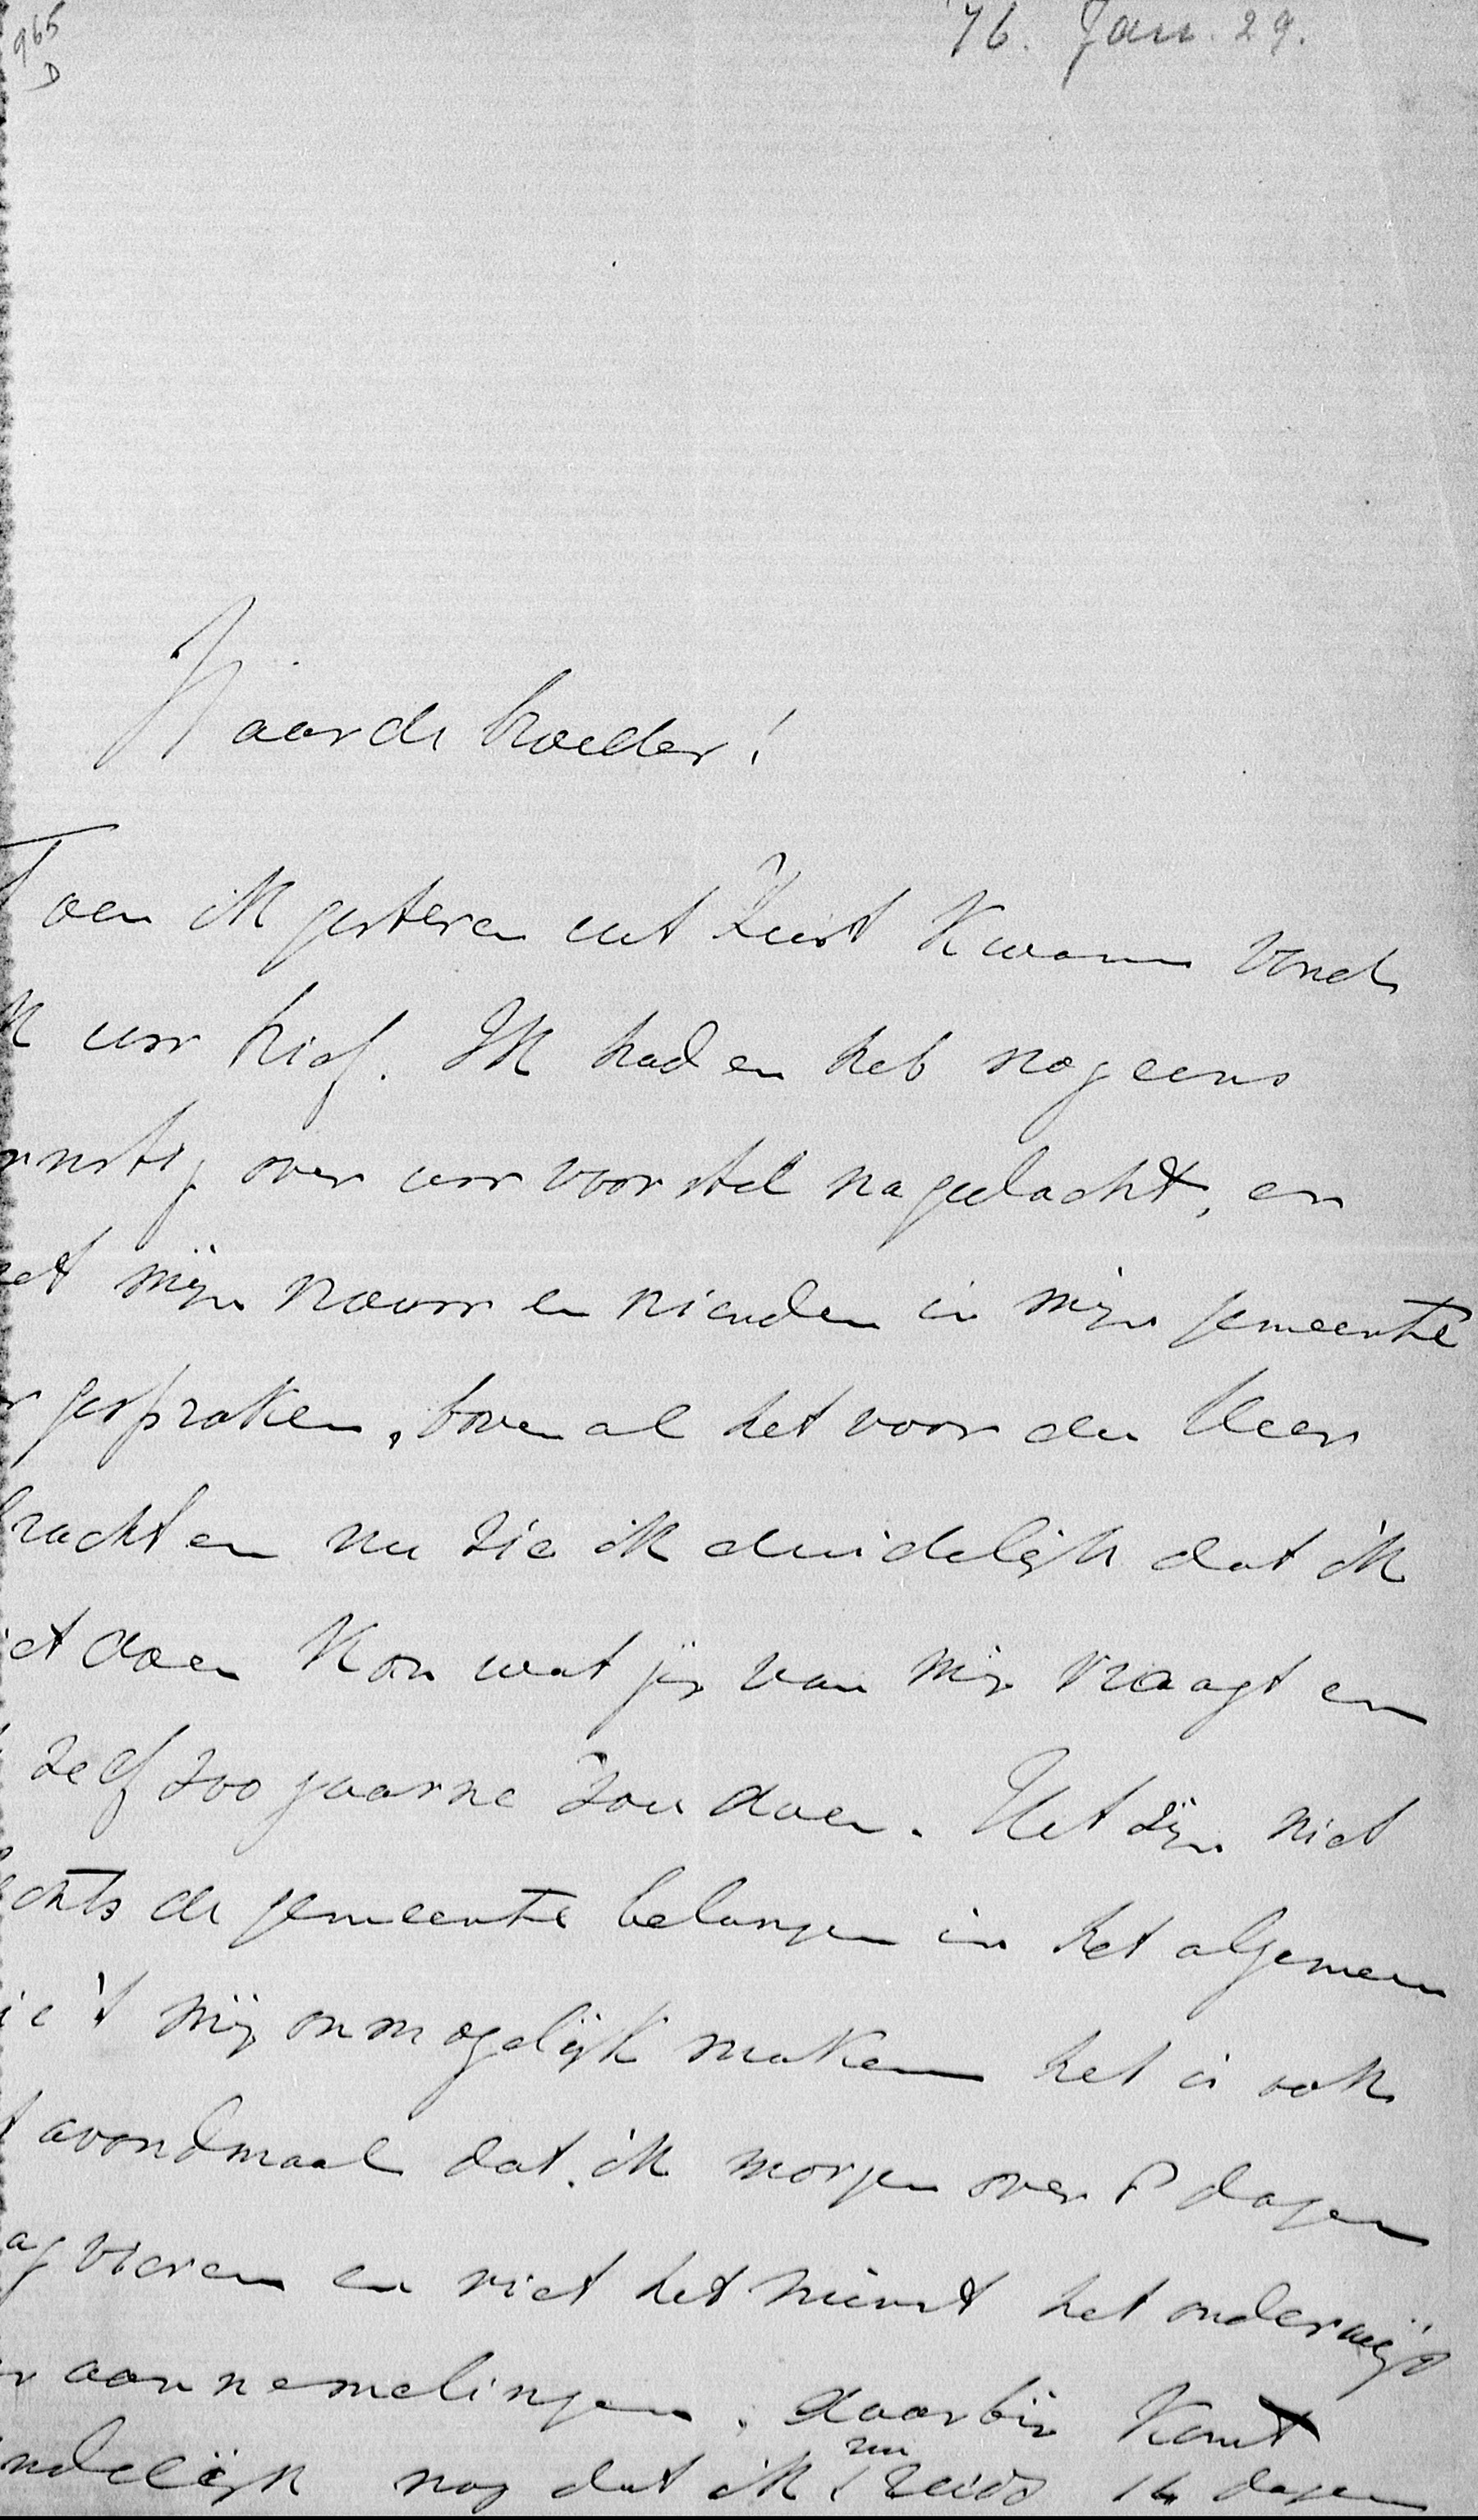 965
D
'76. Jan. 29.
Waarde broeder!
Toen ik gisteren uit Zeist kwam vond
k uw brief. Ik had en heb nog eens
rnstig over uw voorstel nagedacht, en
et mijn vrouw en vrienden in mijn gemeente
r gesproken, bovenal het voor den Heer
bracht en nu zie ik duidelijk dat ik
iet doen kan wat jij van mij vraagt en
zelf zoo gaarne zou doen. Het zijn niet
echts de gemeente belangen in het algemeen
ie 't mij onmogelijk maken het is ook
t avondmaal dat ik morgen over 8 dagen
ag vieren en niet het minst het onderwijs
er aannemelingen. daarbij komt
indelijk nog dat ik nu reeds 14 dagen